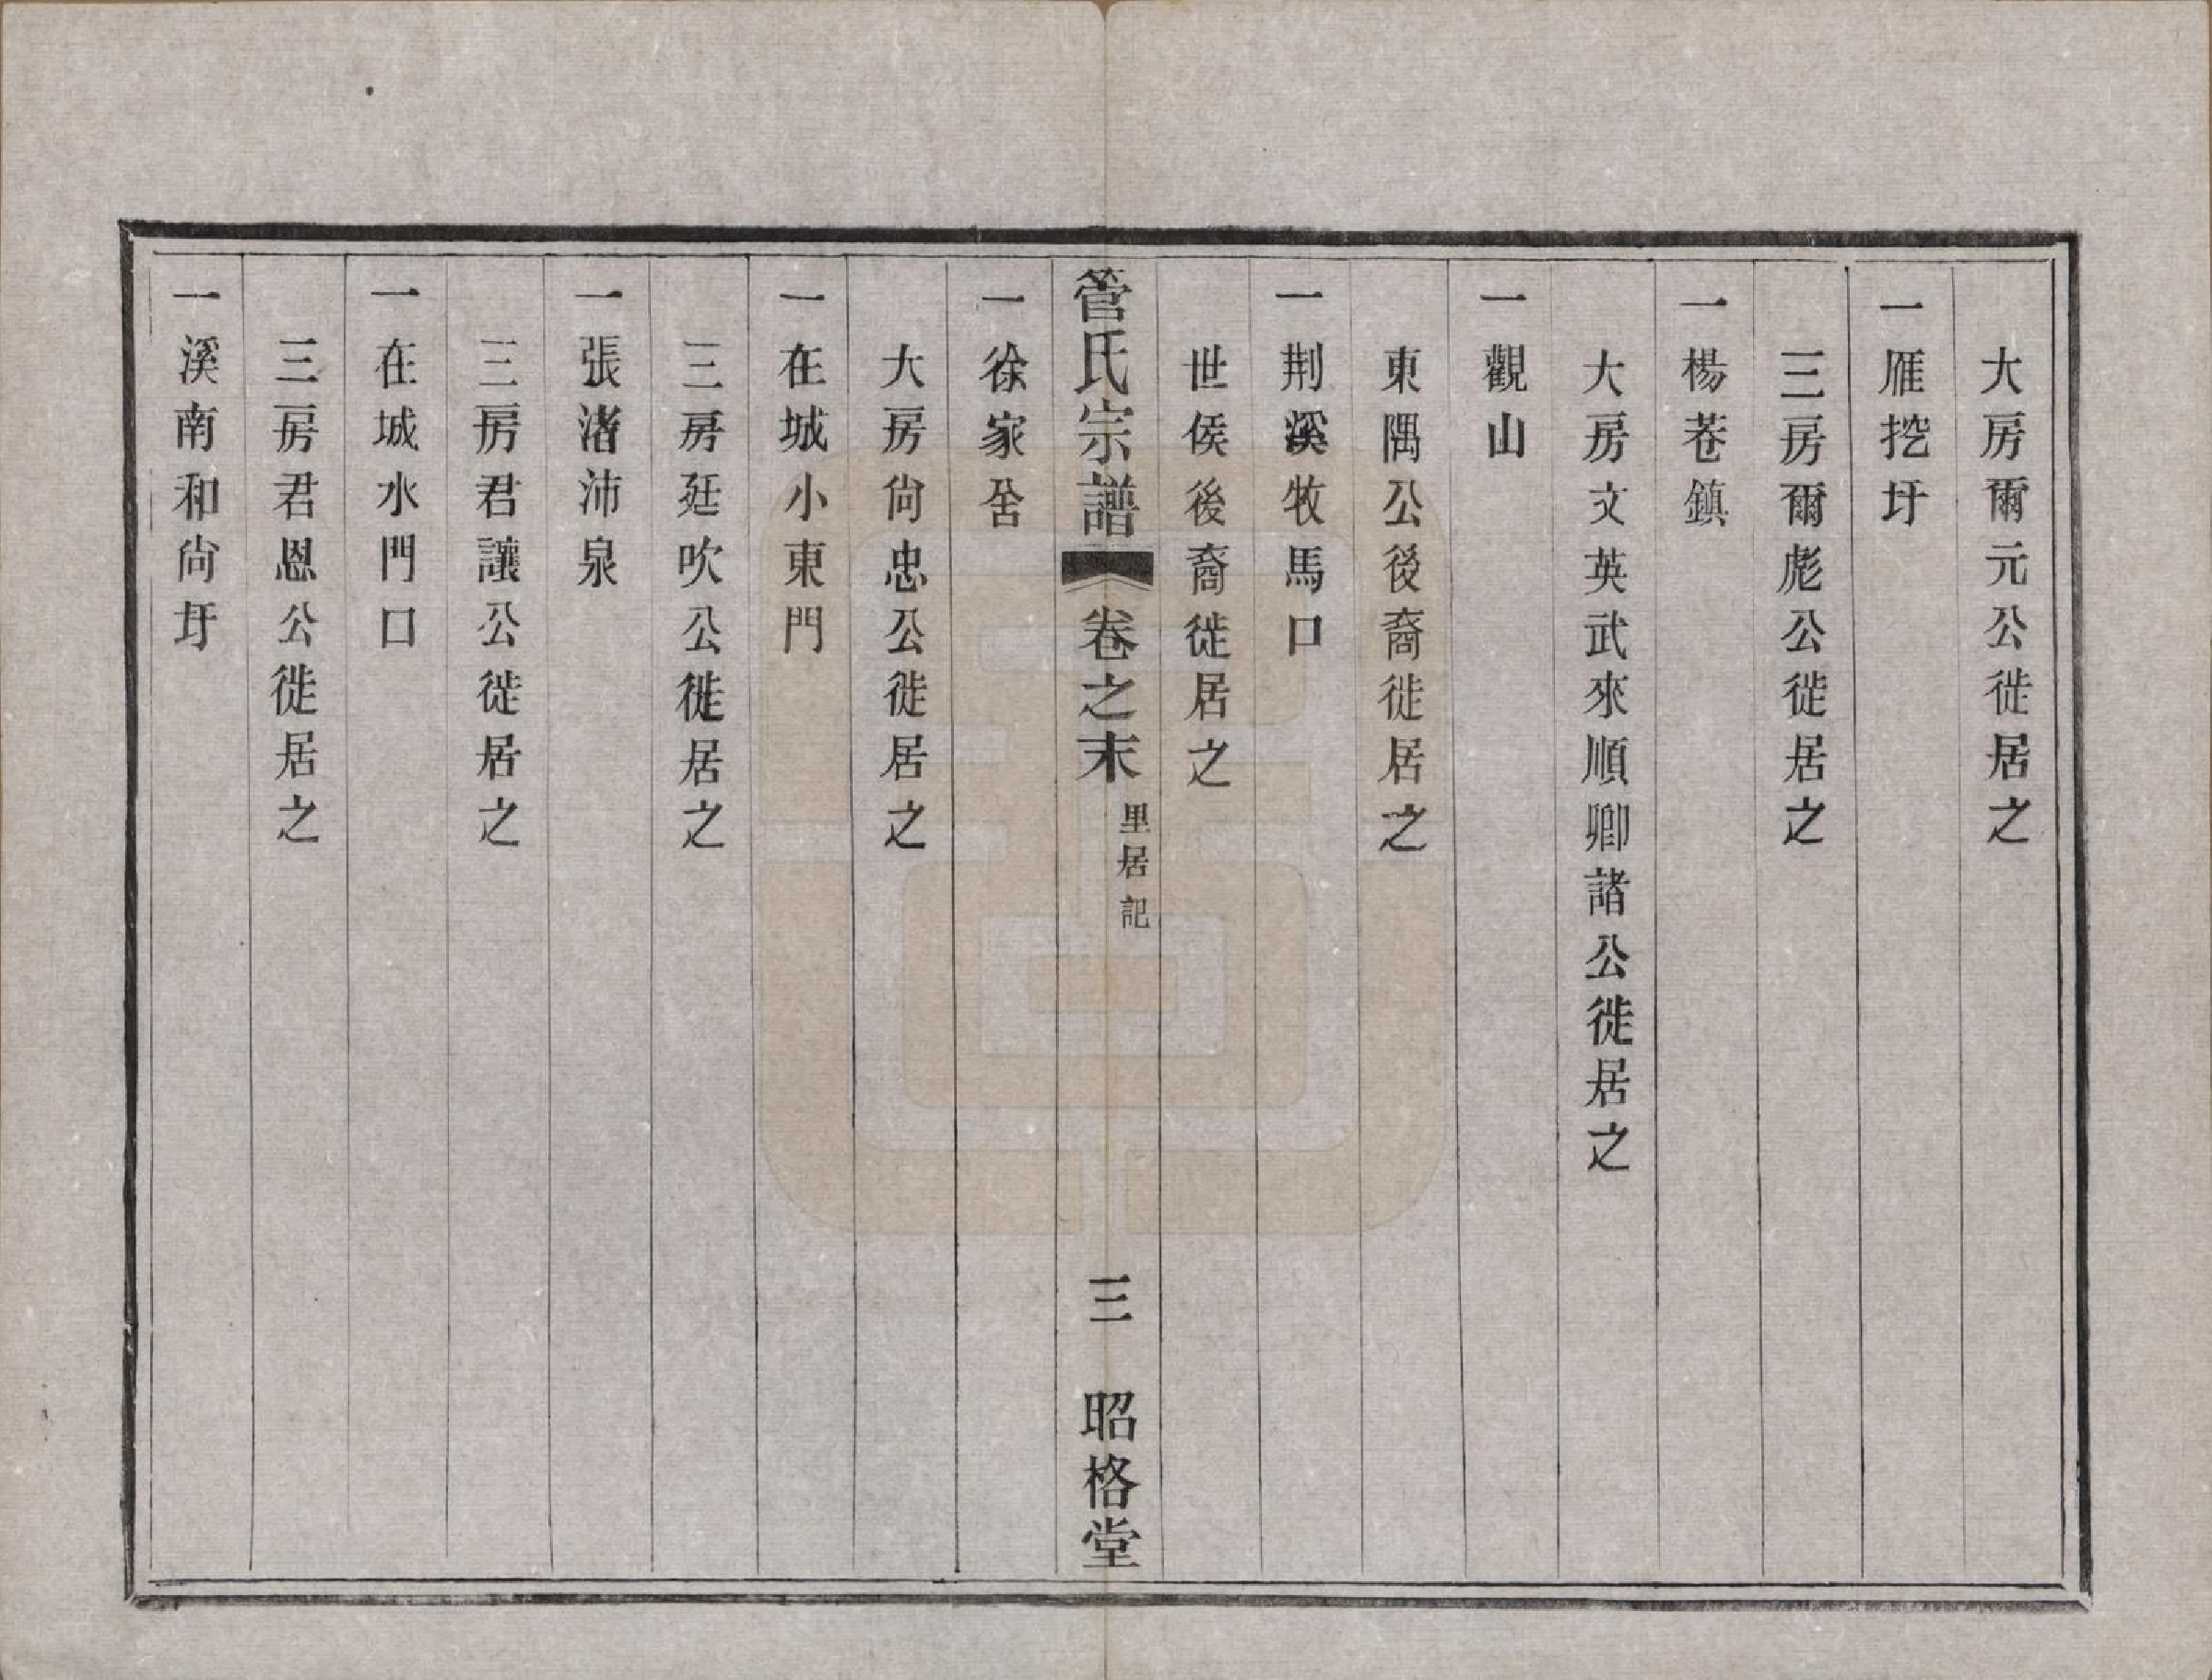 大房爾元公徙居之
一雁挖圩
三房爾彪公徙居之
一楊巷鎮
大房文英武來順卿諸公徙居之
一觀山
東隅公後裔徙居之
一荆溪牧馬口
世侯後裔徙居之
管氏宗譜 卷之末 里居記 三 昭格堂
一徐家舍
大房尙忠公徙居之
一在城小東門
三房廷吹公徙居之
一張渚沛泉
三房君讓公徙居之
一在城水門口
三房君恩公徙居之
一溪南和尙圩